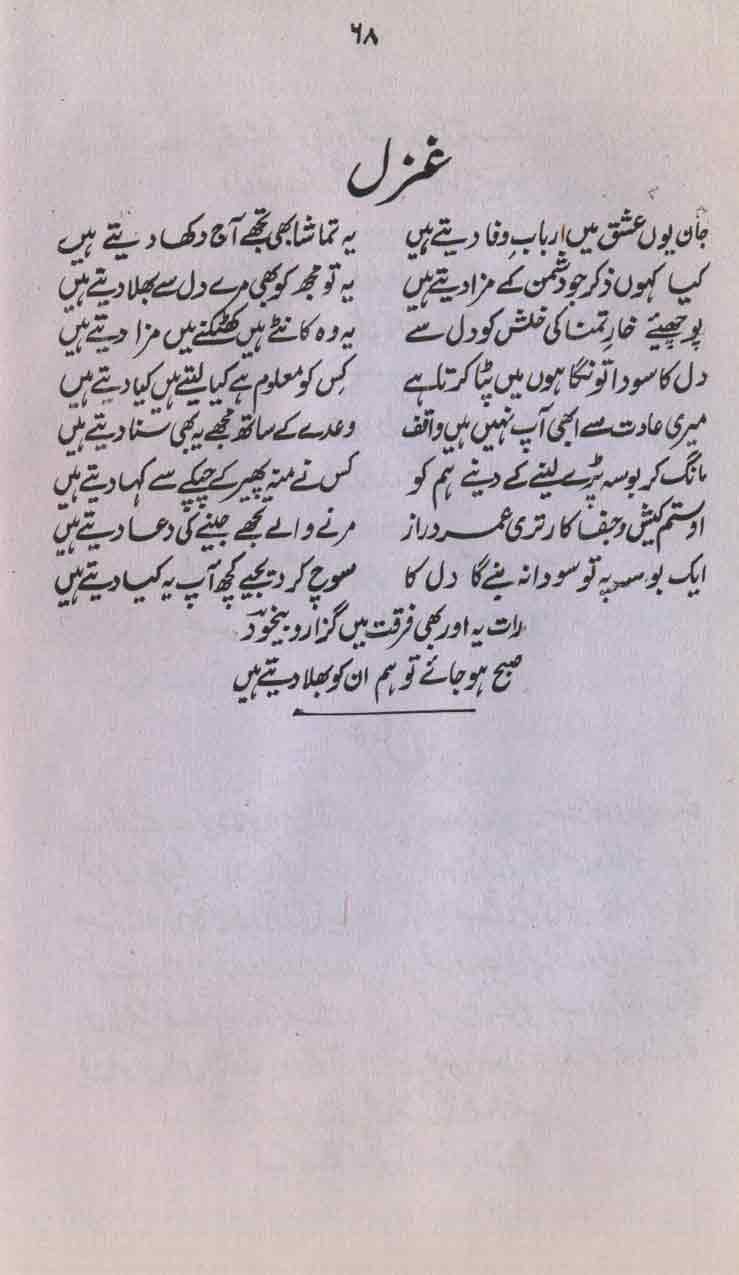 ۶۸
غزل
جان یوں عشق میں اربابِ وفا دیتے ہیں یہ تماشا بھی تجھے آج دکھا دیتے ہیں
کیا کہوں ذکر جو دشمن کے مزا دیتے ہیں یہ تو مجھ کو بھی مرے دل سے بھلا دیتے ہیں
پوچھیئے خارِ تمنا کی خلش کو دل سے یہ وہ کانٹے ہیں کھٹکنے میں مزا دیتے ہیں
دل کا سودا تو نگاہوں میں پٹا کرتا ہے کس کو معلوم ہے کیا لیتے ہیں کیا دیتے ہیں
میری عادت سے ابھی آپ نہیں ہیں واقف وعدے کے ساتھ مجھے یہ بھی سنا دیتے ہیں
مانگ کر بوسہ پڑے لینے کے دینے ہم کو کس نے منہ پھیر کے چپکے سے کہا دیتے ہیں
او ستم کیش و جفا کار تری عمر دراز مرنے والے تجھے جینے کی دعا دیتے ہیں
ایک بوسہ پہ تو سودا نہ بنے گا دل کا سوچ کر دیجیے کچھ آپ یہ کیا دیتے ہیں
رات یہ اور بھی فرقت میں گزارو بیخودؔ
صبح ہو جائے تو ہم ان کو بھلا دیتے ہیں